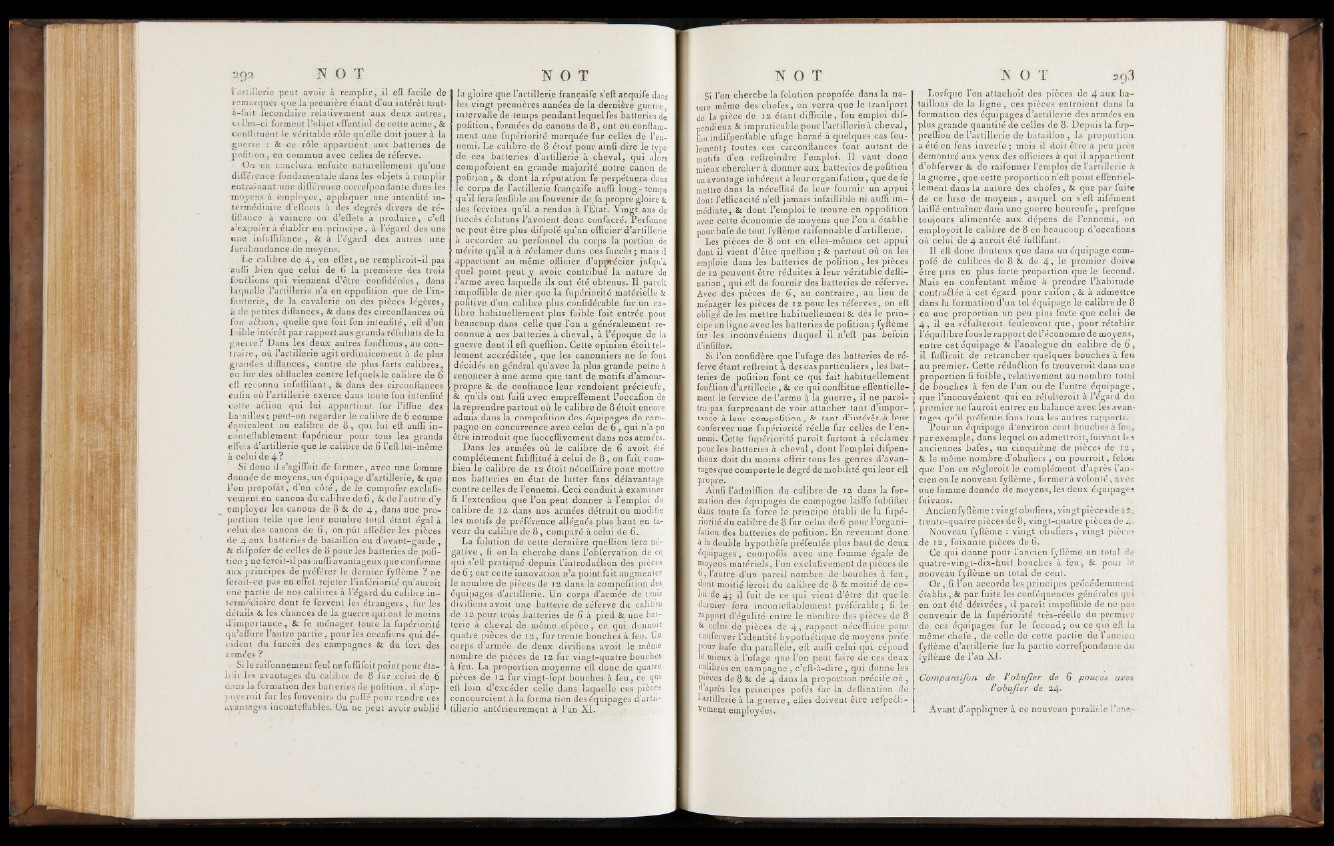 292 N O T
l'artillerie peut avoir à remplir, il eſt facile de
remarquer que la première étant d'un intérêt tout-
à-fait ſecondaire relativement aux deux autres,
celles-ci forment l'objet eſſentiel de cette arme, &
conſtituent le véritable rôle qu'elle doit jouer à la
guerre : & ce rôle appartient aux batteries de
poſition, en commun avec celles de réſerve.
On en conclura enſuite naturellement qu'une
différence fondamentale dans les objets à remplir
entraînant une différence correſpondante dans les
moyens à employer, appliquer une intenſité in-
termédiaire d'efforts à des degrés divers de ré-
ſiſtance à vaincre ou d'effets à produire, c'eſt
s'expoſer à établir en principe, à l'égard des uns
une inſuffiſance, & à l'égard des autres une
ſurabondance de moyens.
Le calibre de 4, en effet, ne rempliroit-il pas
auſſi bien que celui de 6 la première des trois
fonctions qui viennent d'être conſidérées, dans
laquelle l'artillerie n'a en oppoſition que de l'in-
fanterie, de la cavalerie ou des pièces légères,
à de petites diſtances, & dans des circonſtances où
ſon action, quelle que ſoit ſon intenſité, eſt d'un
foible intérêt par rapport aux grands réſultats de la
guerre? Dans les deux autres fonctions, au con-
traire, où l'artillerie agit ordinairement à de plus
grandes diſtances, contre de plus forts calibres,
ou ſur des obſtacles contre leſquels le calibre de 6
eſt reconnu inſuffiſant, & dans des circonſtances
enfin où l'artillerie exerce dans toute ſon intenſité
cette action qui lui appartient ſur l'iſſue des
batailles; peut-on regarder le calibre de 6 comme
équivalent au calibre de 8, qui lui eſt auſſi in-
conteſtablement ſupérieur pour tous les grands
effets d'artillerie que le calibre de 6 l'eſt lui-même
à celui de 4?
Si donc il s'agiſſoit de former, avec une ſomme
donnée de moyens, un équipage d'artillerie, & que
l'on propoſât, d'un côté, de le compoſer excluſi-
vement en canons du calibre de 6, & de l'autre d'y
employer les canons de 8 & de 4, dans une pro-
portion telle que leur nombre total étant égal à
celui des canons de 6, on pût affecter les pièces
de 4 aux batteries de bataillon ou d'avant-garde,
& diſpoſer de celles de 8 pour les batteries de poſi-
tion; ne ſeroit-il pas auſſi avantageux que conforme
aux principes de préférer le dernier ſyſtème ? ne
ſeroit-ce pas en effet rejeter l'infériorité qu'auroit
une partie de nos calibres à l'égard du calibre in-
termédiaire dont ſe ſervent les étrangers, ſur les
détails & les chances de la guerre qui ont le moins
d'importance, & ſe ménager toute la ſupériorité
qu'aſſure l'autre partie, pour les occaſions qui dé-
cident du ſuccès des campagnes & du ſort des
armées ?
Si le raiſonnement ſeul ne ſuffiſoit point pour éta-
blir les avantages du calibre de 8 ſur celui de 6
dans la formation des batteries de poſition, il s'ap-
puyeroit ſur les ſouvenirs du paſſé pour rendre ces
avantages inconteſtables. On ne peut avoir oublié
N O T
la gloire que l'artillerie françaiſe s'eſt acquiſe dans
les vingt premières années de la dernière guerre,
intervalle de temps pendant lequel ſes batteries de
poſition, formées de canons de 8, ont eu conſtam-
ment une ſupériorité marquée ſur celles de l'en-
nemi. Le calibre de 8 étoit pour ainſi dire le type
de ces batteries d'artillerie à cheval, qui alors
compoſoient en grande majorité notre canon de
poſition, & dont la réputation ſe perpétuera dans
le corps de l'artillerie françaiſe auſſi long-temps
qu'il ſera ſenſible au ſouvenir de ſa propre gloire &
des ſervices qu'il a rendus à l'Etat. Vingt ans de
ſuccès éclatans l'avoient donc conſacré. Perſonne
ne peut être plus diſpoſé qu'un officier d'artillerie
à accorder au perſonnel du corps la portion de
mérite qu'il a à réclamer dans ces ſuccès; mais il
appartient au même officier d'apprécier juſqu'à
quel point peut y avoir contribué la nature de
l'arme avec laquelle ils ont été obtenus. Il paroît
impoſſible de nier que la ſupériorité matérielle &
poſitive d'un calibre plus conſidérable ſur un ca-
libre habituellement plus foible ſoit entrée pour
beaucoup dans celle que l'on a généralement re-
connue à nos batteries à cheval, à l'époque de la
guerre dont il eſt queſtion. Cette opinion étoit tel-
lement accréditée, que les canonniers ne ſe ſont
décidés en général qu'avec la plus grande peine à
renoncer à une arme que tant de motifs d'amour-
propre & de confiance leur rendoient précieuſe,
& qu'ils ont ſaiſi avec empreſſement l'occaſion de
la reprendre partout où le calibre de 8 étoit encore
admis dans la compoſition des équipages de cam-
pagne en concurrence avec celui de 6, qui n'a pu
être introduit que ſucceſſivement dans nos armées.
Dans les armées où le calibre de 6 avoit été
complètement ſubſtitué à celui de 8, on ſait com-
bien le calibre de 12 étoit néceſſaire pour mettre
nos batteries en état de lutter ſans déſavantage
contre celles de l'ennemi. Ceci conduit à examiner
ſi l'extenſion que l'on peut donner à l'emploi du
calibre de 12 dans nos armées détruit ou modifie
les motifs de préférence allégués plus haut en fa-
veur du calibre de 8, comparé à celui de 6.
La ſolution de cette dernière queſtion ſera né-
gative, ſi on la cherche dans l'obſervation de ce
qui s'eſt pratiqué depuis l'introduction des pièces
de 6; car cette innovation n'a point fait augmenter
le nombre de pièces de 12 dans la compoſition des
équipages d'artillerie. Un corps d'armée de trois
diviſions avoit une batterie de réſerve du calibre
de 12 pour trois batteries de 6 à pied & une bat-
terie à cheval de même eſpèce, ce qui donnoit
quatre pièces de 12, ſur trente bouches à feu. Un
corps d'armée de deux diviſions avoit le même
nombre de pièces de 12 ſur vingt-quatre bouches
à feu. La proportion moyenne eſt donc de quatre
pièces de 12 ſur vingt-ſept bouches à feu, ce qui
eſt loin d'excéder celle dans laquelle ces pièces
concouroient à la formation des équipages d'artil-
lerie antérieurement à l'an XI.
N O T
Si l'on cherche la ſolution propoſée dans la na-
ture même des choſes, on verra que le tranſport
de la pièce de 12 étant difficile, ſon emploi diſ-
pendieux & impraticable pour l'artillerie à cheval,
ſon indiſpenſable uſage borné à quelques cas ſeu-
lement; toutes ces circonſtances ſont autant de
motifs d'en reſtreindre l'emploi. Il vaut donc
mieux chercher à donner aux batteries de poſition
un avantage inhérent à leur organiſation, que de ſe
mettre dans la néceſſité de leur fournir un appui
dont l'efficacité n'eſt jamais infaillible ni auſſi im-
médiate, & dont l'emploi ſe trouve en oppoſition
avec cette économie de moyens que l'on a établie
pour baſe de tout ſyſtème raiſonnable d'artillerie.
Les pièces de 8 ont en elles-mêmes cet appui
dont il vient d'être queſtion; & partout où on les
emploie dans les batteries de poſition, les pièces
de 12 peuvent être réduites à leur véritable deſti-
nation, qui eſt de fournir des batteries de réſerve.
Avec des pièces de 6, au contraire, au lieu de
ménager les pièces de 12 pour les réſerves, on eſt
obligé de les mettre habituellement & dès le prin-
cipe en ligne avec les batteries de poſition; ſyſtème
ſur les inconvéniens duquel il n'eſt pas beſoin
d'inſiſter.
Si l'on conſidère que l'uſage des batteries de ré-
ſerve étant reſtreint à des cas particuliers, les bat-
teries de poſition ſont ce qui fait habituellement
fonction d'artillerie, & ce qui conſtitue eſſentielle-
ment le ſervice de l'arme à la guerre, il ne paroî-
tra pas ſurprenant de voir attacher tant d'impor-
tance à leur compoſition, & tant d'intérêt à leur
conſerver une ſupériorité réelle ſur celles de l'en-
nemi. Cette ſupériorité paroît ſurtout à réclamer
pour les batteries à cheval, dont l'emploi diſpen-
dieux doit du moins offrir tous les genres d'avan-
tages que comporte le degré de mobilité qui leur eſt
propre.
Ainſi l'admiſſion du calibre de 12 dans la for-
mation des équipages de campagne laiſſe ſubſiſter
dans toute ſa force le principe établi de la ſupé-
riorité du calibre de 8 ſur celui de 6 pour l'organi-
ſation des batteries de poſition. En revenant donc
à la double hypothèſe préſentée plus haut de deux
équipages, compoſés avec une ſomme égale de
moyens matériels, l'un excluſivement de pièces de
6, l'autre d'un pareil nombre de bouches à feu,
dont moitié ſeroit du calibre de 8 & moitié de ce-
lui de 4; il ſuit de ce qui vient d'être dit que le
dernier ſera inconteſtablement préférable; ſi le
rapport d'égalité entre le nombre des pièces de 8
& celui de pièces de 4, rapport néceſſaire pour
conſerver l'identité hypothétique de moyens priſe
pour baſe du parallèle, eſt auſſi celui qui répond
le mieux à l'uſage que l'on peut faire de ces deux
calibres en campagne, c'eſt-à-dire, qui donne les
pièces de 8 & de 4 dans la proportion préciſe où,
d'après les principes poſés ſur la deſtination de
l'artillerie à la guerre, elles doivent être reſpecti-
vement employées.
N O T 293
Lorſque l'on attachoit des pièces de 4 aux ba-
taillons de la ligne, ces pièces entroient dans la
formation des équipages d'artillerie des armées en
plus grande quantité de celles de 8. Depuis la ſup-
preſſion de l'artillerie de bataillon, la proportion
a été en ſens inverſe; mais il doit être à peu près
démontré aux yeux des officiers à qui il appartient
d'obſerver & de raiſonner l'emploi de l'artillerie à
la guerre, que cette proportion n'eſt point eſſentiel-
lement dans la nature des choſes, & que par ſuite
de ce luxe de moyens, auquel on s'eſt aiſément
laiſſé entraîner dans une guerre heureuſe, preſque
toujours alimentée aux dépens de l'ennemi, on
employoit le calibre de 8 en beaucoup d'occaſions
où celui de 4 auroit été ſuffiſant.
Il eſt donc douteux que dans un équipage com-
poſé de calibres de 8 & de 4, le premier doive
être pris en plus forte proportion que le ſecond.
Mais en conſentant même à prendre l'habitude
contractée à cet égard pour raiſon, & à admettre
dans la formation d'un tel équipage le calibre de 8
en une proportion un peu plus forte que celui de
4, il en réſulteroit ſeulement que, pour rétablir
l'équilibre ſous le rapport de l'économie de moyens,
entre cet équipage & l'analogue du calibre de 6,
il ſuffiroit de retrancher quelques bouches à feu
au premier. Cette réduction ſe trouveroit dans une
proportion ſi foible, relativement au nombre total
de bouches à feu de l'un ou de l'autre équipage,
que l'inconvénient qui en réſulteroit à l'égard du
premier ne ſauroit entrer en balance avec les avan-
tages qu'il préſente ſous tous les autres rapports.
Pour un équipage d'environ cent bouches à feu,
par exemple, dans lequel on admettroit, ſuivant les
anciennes baſes, un cinquième de pièces de 12,
& le même nombre d'obuſiers, on pourroit, ſelon
que l'on en régleroit le complément d'après l'an-
cien ou le nouveau ſyſtème, former à volonté, avec
une ſomme donnée de moyens, les deux équipages
ſuivans.
Ancien ſyſtème : vingt obuſiers, vingt pièces de 12,
trente-quatre pièces de 8, vingt-quatre pièces de 4.
Nouveau ſyſtème : vingt obuſiers, vingt pièces
de 12, ſoixante pièces de 6.
Ce qui donne pour l'ancien ſyſtème un total de
quatre-vingt-dix-huit bouches à feu, & pour le
nouveau ſyſtème un total de cent.
Or, ſi l'on accorde les principes précédemment
établis, & par ſuite les conſéquences générales qui
en ont été dérivées, il paroît impoſſible de ne pas
convenir de la ſupériorité très-réelle du premier
de ces équipages ſur le ſecond; ou ce qui eſt la
même choſe, de celle de cette partie de l'ancien
ſyſtème d'artillerie ſur la partie correſpondante du
ſyſtème de l'an XI.
Comparaiſon de l'obuſier de 6 pouces avec
l'obuſier de 24.
Avant d'appliquer à ce nouveau parallèle